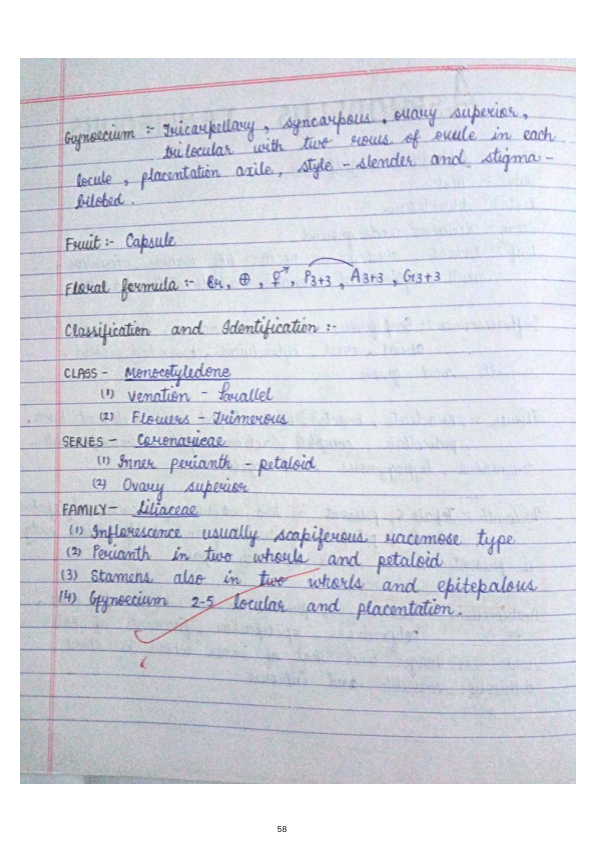 Gynoecium :- Tricarpellary, syncarpous, ovary superior,
trilocular with two rows of ovule in each
locule, placentation axile, style - slender and stigma -
bilobed.
Fruit :- Capsule
Floral formula :- Br, ⊕, ⚥, P3+3, A3+3, G3+3
Classification and Identification :-
CLASS - Monocotyledone
(1) Venation - Parallel
(2) Flowers - Trimerous
SERIES - Coronarieae
(1) Inner perianth - petaloid
(2) Ovary superior
FAMILY - Liliaceae
(1) Inflorescence usually scapiferous racemose type
(2) Perianth in two whorls and petaloid
(3) Stamens also in two whorls and epitepalous
(4) Gynoecium 2-5 locular and placentation.
58